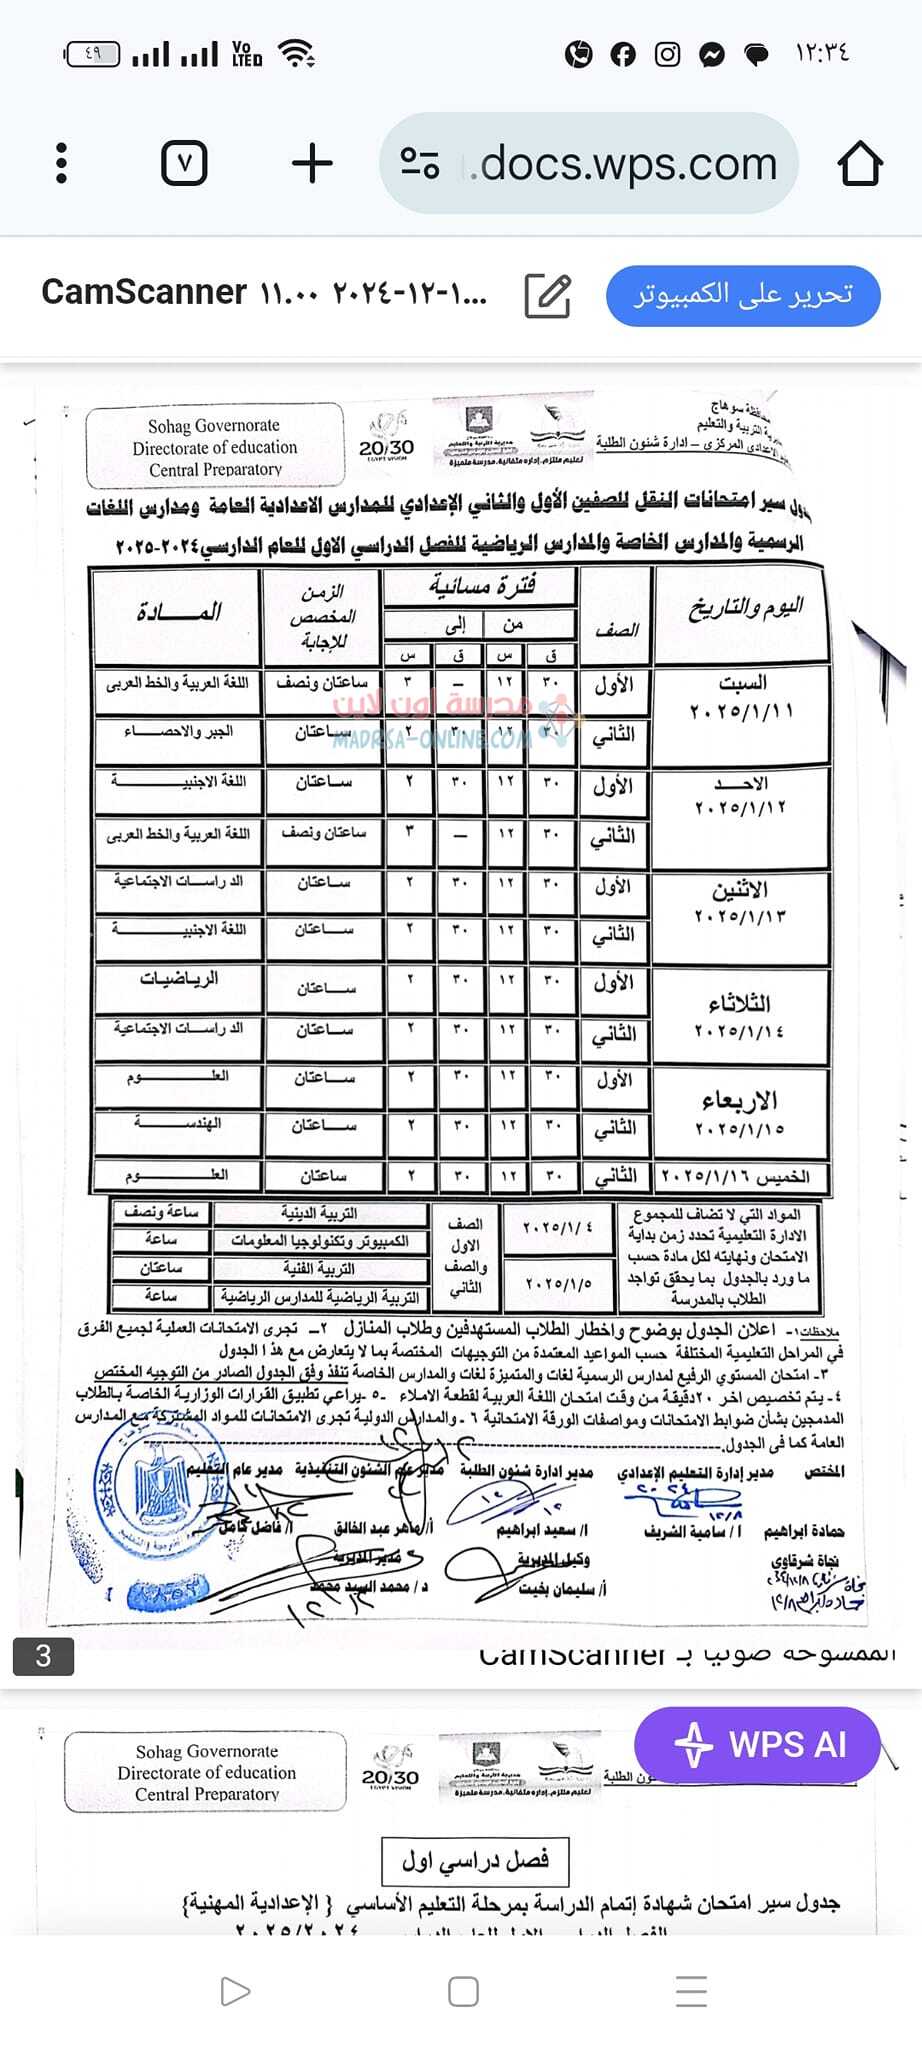 ٤٩
Vo LTED
١٢:٣٤
٧
.docs.wps.com
CamScanner ١١.٠٠ ٢٠٢٤-١٢-١...
تحرير على الكمبيوتر
Sohag Governorate
Directorate of education
Central Preparatory
20/30
EGYPT VISION
مديرية التربية والتعليم
تعليم ملتزم، إدارة متفانية، مدرسة متميزة
محافظة سوهاج
ية التربية والتعليم
الاعدادي المركزي – ادارة شئون الطلبة
دول سير امتحانات النقل للصفين الأول والثاني الإعدادي للمدارس الاعدادية العامة ومدارس اللغات
الرسمية والمدارس الخاصة والمدارس الرياضية للفصل الدراسي الاول للعام الدارسي٢٠٢٤-٢٠٢٥
اليوم والتاريخ الصف فترة مسائية الزمن المخصص للإجابة المــادة
من إلى
ق س ق س
السبت ٢٠٢٥/١/١١ الأول ٣٠ ١٢ – ٣ ساعتان ونصف اللغة العربية والخط العربى
الثاني ٣٠ ١٢ ٣٠ ٢ ساعتان الجبر والاحصاء
مدرسة اون لاين
MADRSA-ONLINE.COM
الاحد ٢٠٢٥/١/١٢ الأول ٣٠ ١٢ ٣٠ ٢ ساعتان اللغة الاجنبية
الثاني ٣٠ ١٢ – ٣ ساعتان ونصف اللغة العربية والخط العربى
الاثنين ٢٠٢٥/١/١٣ الأول ٣٠ ١٢ ٣٠ ٢ ساعتان الدراسات الاجتماعية
الثاني ٣٠ ١٢ ٣٠ ٢ ساعتان اللغة الاجنبية
الثلاثاء ٢٠٢٥/١/١٤ الأول ٣٠ ١٢ ٣٠ ٢ ساعتان الرياضيات
الثاني ٣٠ ١٢ ٣٠ ٢ ساعتان الدراسات الاجتماعية
الاربعاء ٢٠٢٥/١/١٥ الأول ٣٠ ١٢ ٣٠ ٢ ساعتان العلوم
الثاني ٣٠ ١٢ ٣٠ ٢ ساعتان الهندسة
الخميس ٢٠٢٥/١/١٦ الثاني ٣٠ ١٢ ٣٠ ٢ ساعتان العلوم
المواد التي لا تضاف للمجموع
الادارة التعليمية تحدد زمن بداية
الامتحان ونهايته لكل مادة حسب
ما ورد بالجدول بما يحقق تواجد
الطلاب بالمدرسة
٢٠٢٥/١/٤
٢٠٢٥/١/٥
الصف الاول والصف الثاني
التربية الدينية ساعة ونصف
الكمبيوتر وتكنولوجيا المعلومات ساعة
التربية الفنية ساعتان
التربية الرياضية للمدارس الرياضية ساعة
ملاحظات١- اعلان الجدول بوضوح واخطار الطلاب المستهدفين وطلاب المنازل ٢– تجرى الامتحانات العملية لجميع الفرق
في المراحل التعليمية المختلفة حسب المواعيد المعتمدة من التوجيهات المختصة بما لا يتعارض مع هذا الجدول
٣- امتحان المستوي الرفيع لمدارس الرسمية لغات والمتميزة لغات والمدارس الخاصة تنفذ وفق الجدول الصادر من التوجيه المختص
٤- يتم تخصيص اخر ٢٠دقيقة من وقت امتحان اللغة العربية لقطعة الاملاء ٥- يراعي تطبيق القرارات الوزارية الخاصة بالطلاب
المدمجين بشأن ضوابط الامتحانات ومواصفات الورقة الامتحانية ٦- والمدارس الدولية تجرى الامتحانات للمواد المشتركة مع المدارس
العامة كما فى الجدول.
المختص مدير إدارة التعليم الإعدادي مدير ادارة شئون الطلبة مدير عام الشئون التنفيذية مدير عام التعليم
حمادة ابراهيم ا/ سامية الشريف ا/ سعيد ابراهيم أ/ ماهر عبد الخالق ا/ فاضل كامل
نجاة شرقاوي وكيل المديرية مدير المديرية
أ/ سليمان بخيت د/ محمد السيد محمد
3
الممسوحة ضوئيا بـ CamScanner
Sohag Governorate
Directorate of education
Central Preparatory
20/30
EGYPT VISION
مديرية التربية والتعليم
تعليم ملتزم، إدارة متفانية، مدرسة متميزة
ئون الطلبة
WPS AI
فصل دراسي اول
جدول سير امتحان شهادة إتمام الدراسة بمرحلة التعليم الأساسي { الإعدادية المهنية}
٢٠٢٥/٢٠٢٤